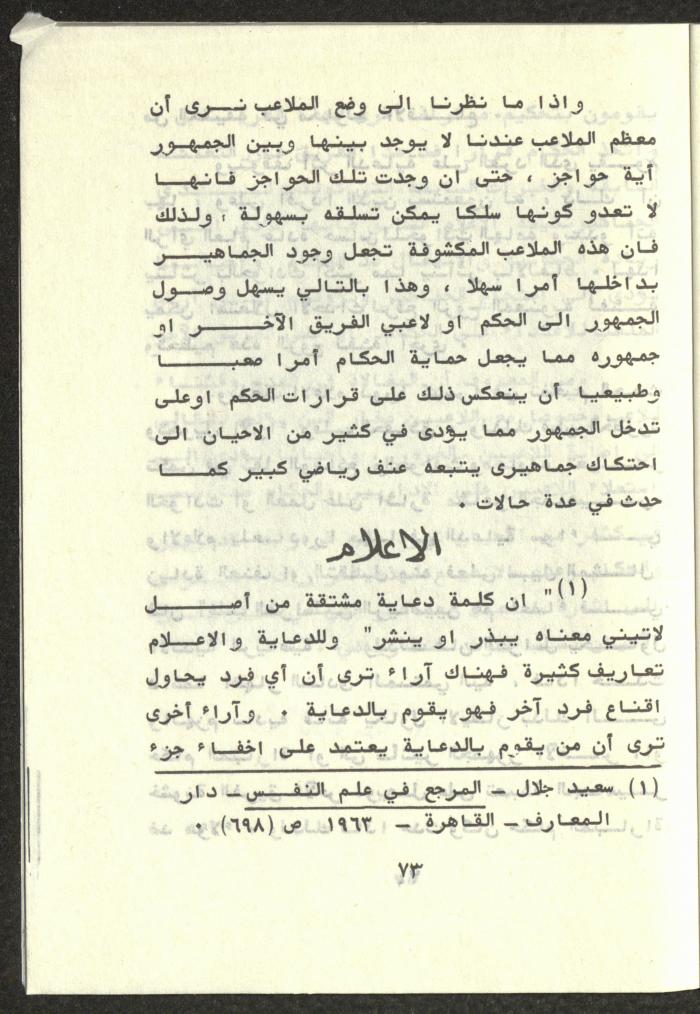 واذا ما نظرنا الى وضع الملاعب نرى أن
معظم الملاعب عندنا لا يوجد بينها وبين الجمهور
أية حواجز ، حتى ان وجدت تلك الحواجز فانها
لا تعدو كونها سلكا يمكن تسلقه بسهولة ، ولذلك
فان هذه الملاعب المكشوفة تجعل وجود الجماهير
بداخلها أمرا سهلا ، وهذا بالتالي يسهل وصول
الجمهور الى الحكم او لاعبي الفريق الآخر او
جمهوره مما يجعل حماية الحكام أمرا صعبا
وطبيعيا أن ينعكس ذلك على قرارات الحكم اوعلى
تدخل الجمهور مما يؤدى في كثير من الاحيان الى
احتكاك جماهيرى يتبعه عنف رياضي كبير كما
حدث في عدة حالات .
الاعلام
(١) " ان كلمة دعاية مشتقة من أصل
لاتيني معناه يبذر او ينشر " وللدعاية والاعلام
تعاريف كثيرة فهناك آراء ترى أن أي فرد يحاول
اقناع فرد آخر فهو يقوم بالدعاية . وآراء أخرى
ترى أن من يقوم بالدعاية يعتمد على اخفاء جزء
(١) سعيد جلال - المرجع في علم النفس - دار
المعارف - القاهرة - ١٩٦٣ ص (٦٩٨) .
٧٣